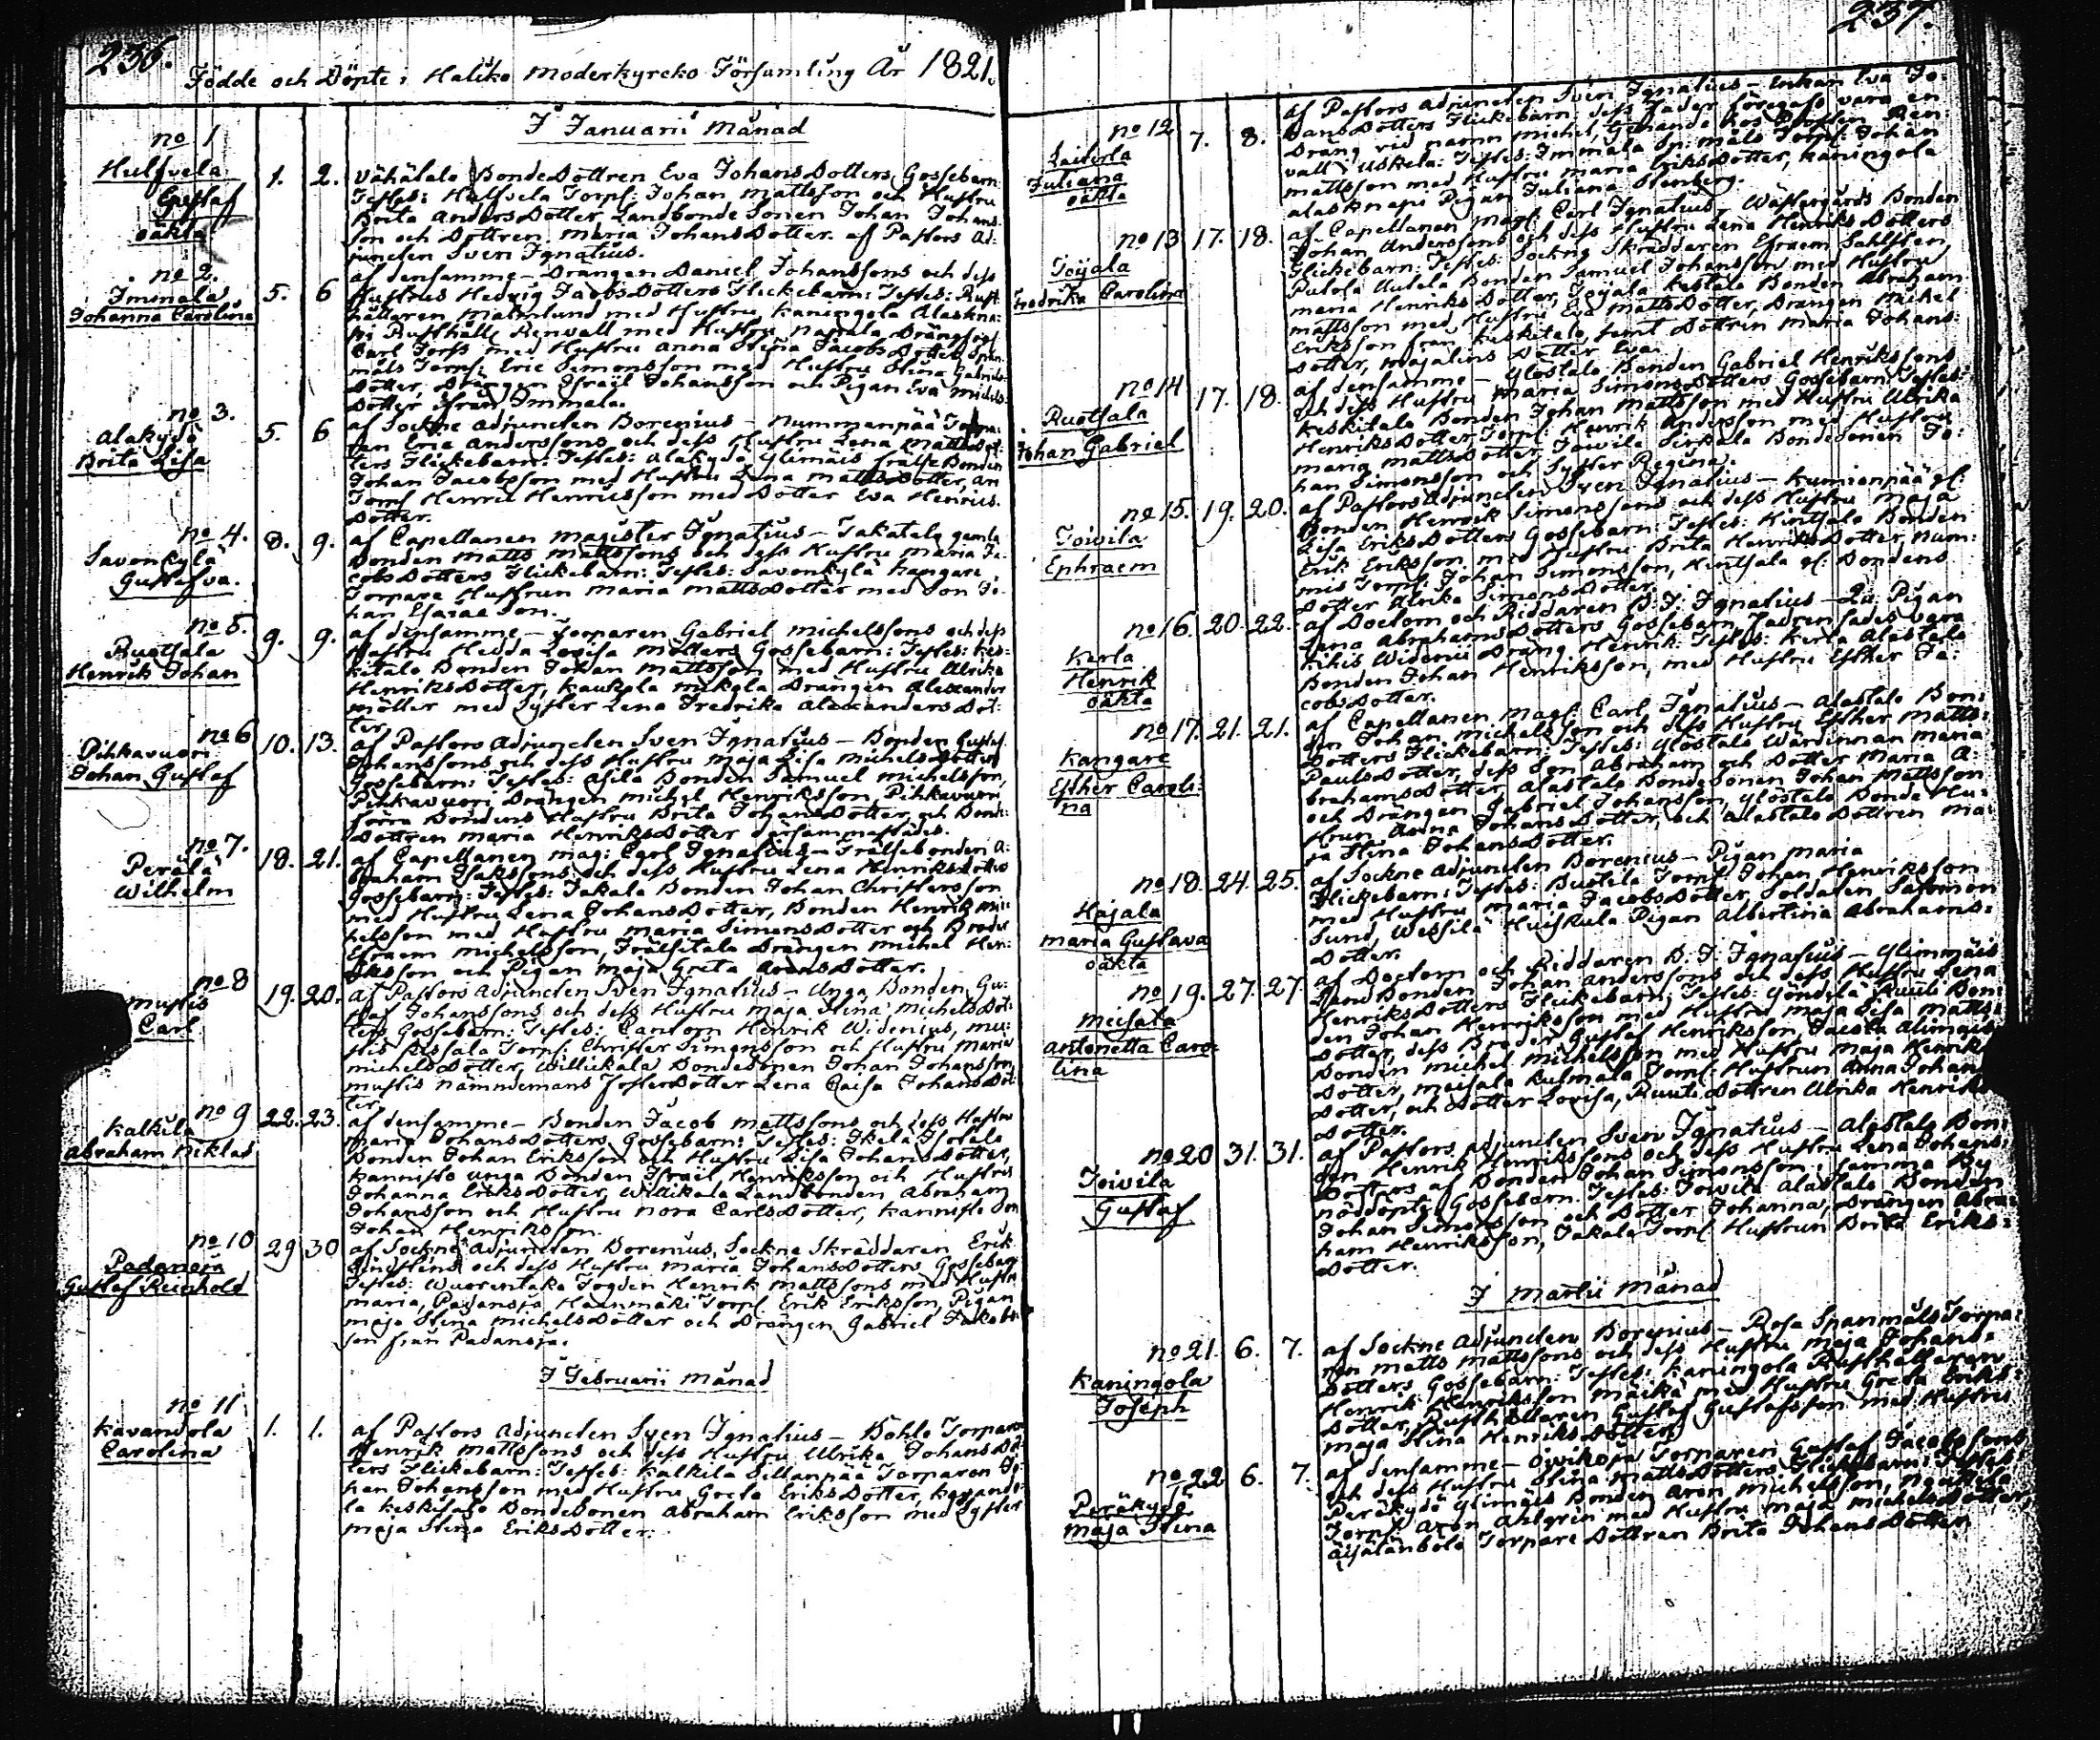 236.
Födde och Döpte i Haliko Moderkyrcko Församling År 1821.
I Januarii Månad
no 1
Hulfvela
Gustaf
oäkta
1. 2.
Vähälalo BondeDottren Eva JohansDotters Gossebarn
Testes: Hulfvela Torps: Johan Mattsson och Hustru
Brita AndersDotter, Landbonde Sonen Johan Johans
son och Dottren Maria JohansDotter. af Pastors Ad:
juncten Sven Ignatius.
no 2.
Immala
Johanna Carolina
5. 6
af densamme – Drängen Daniel Johanssons och dess
Hustrus Hedvig JacobsDotters Flickebarn: Testes: Rust
hållaren Malmlund med Hustru, Kaningola Alaskna:
pi Rusthåll: Renvall med Hustru,
Carl Forss med Hustru Anna Stina JacobsDotter, Span
måls Torps: Eric Simonsson med Hustru Stina Gabriels
Dotter, Drängen Israel Johansson och Pigan Eva Michels
Dotter ifrån Immala.
no 3.
Alakydö
Brita Lisa
5. 6
af Sockne Adjuncten Borenius – Nummenpää Torpa:
ren Eric Anderssons och dess Hustru Lena MattsDot
ters Flickebarn: Testes: Alakydö Ylimäis Frälse Bonden
Johan Jacobsson med Hustru Lena MattsDotter, an
Torps Henric Henricsson med Dotter Eva Henrics
Dotter.
no 4.
Savonkylä
Gustafva.
8. 9.
af Capellanen Magister Ignatius – Takatalo gamla
Bonden Matts Mattsons och dess Hustru Maria Ja:
cobsDotters Flickebarn: Testes: Savonkylä Kangare
Torpare Hustrun Maria MattsDotter med Son Jo:
han Esaiae Son.
no 5.
Ruotsala
Henrik Johan
9. 9.
af densamme – Torparen Gabriel Michelssons och dess
Hustru Hedda Lovisa Möllers Gossebarn: Testes: Kes:
kitalo Bonden Johan Mattsson med Hustru Ulrika
HenriksDotter, Kaukola Mikola Drängen Alexander
Möller med Syster Lena Fredrika AlexandersDot:
ter.
no 6
Pihkavuori
Johan Gustaf
10. 13.
af Pastors Adjuncten Sven Ignatius – Bonden Gustaf
Johanssons och dess Hustru Maja Lisa MichelsDotters
Gossebarn: Testes: Asila Bonden Samuel Michelsson,
Pihkavuori Drängen Michel Henriksson, Pihkavuori
förra Bondens Hustru Brita JohansDotter och Bonde
Dottren Maria HenriksDotter därsammastädes.
no 7.
Perälä
Wilhelm
18. 21.
af Capellanen Mag: Carl Ignatius – Frälsebonden A:
braham Isakssons och dess Hustru Lena HenriksDotters
Gossebarn: Testes: Takala Bonden Johan Christersson
med Hustru Lena JohansDotter, Bonden Henrik Mi:
chelsson med Hustru Maria SimonsDotter och Broder
Efraem Michelsson, Frälsitalo Drängen Michel Hen:
riksson och Pigan Maja Greta AronsDotter.
no 8
Mustis
Carl
19. 20.
af Pastors Adjuncten Sven Ignatius – Unga Bonden Gu:
staf Johanssons och dess Hustru Maja Stina MichelsDot
ters Gossebarn: Testes: Cantorn Henrik Widenius, Mu:
stis Torps: Christer Simonsson och Hustru Maria
MichelsDotter, Willickala BondeSonen Johan Johansson
Mustis Nämndemans FosterDotter Lena Caisa JohansDot
ter.
no 9
Kalkila
Abraham Niklas
22. 23.
af densamme – Bonden Jacob Mattssons och dess Hustru
Maria JohansDotters Gossebarn: Testes: Ikela Isotalo
Bonden Johan Eriksson och Hustru Lisa JohansDotter,
Kannisto unga Bonden Israel Henriksson och Hustru
Johanna EriksDotter, Willikala Landbonden Abraham
Johansson och Hustru Nora CarlsDotter, Kannisto Son
Johan Henriksson.
no 10
Padansia
Gustaf Reinhold
29 30
af Sockne Adjuncten Borenius, Sockne Skräddaren Erik
Lindstens och dess Hustru Maria JohansDotters Gossebarn
Testes: Wuorentaka Fogden Henrik Mattssons med Hustru
Maria, Padansia Haanmäki Torps: Erik Eriksson, Pigan
Maja Stina MichelsDotter och Drängen Gabriel Jakobs
son från Padansia.
I Februarii Månad
no 11
Kavandola
Carolina
1. 1.
af Pastors Adjuncten Sven Ignatius – Kohlo Torparen
Henrik Mattssons och dess Hustru Ulrika JohansDot
ters Flickebarn: Testes: Kalkila Sillanpää Torparen Jo:
han Johansson med Hustru Greta EriksDotter, Kavando:
la Keskitalo BondeSonen Abraham Eriksson med Syster
Maja Stina EriksDotter.
237.
no 12
Juliana
oäkta
7. 8.
af Pastors Adjuncten Sven Ignatius – Enkan Eva Jo:
hansDotters Flickebarn, dess Fader föregafs vara en
Dräng vid namn Michel, tjenande hos Ren:
vall i Uskela. Testes: Immala Sp: måls Torps: Johan
Mattsson med Hustru Maria EriksDotter, Kaningola
Alasknapi Pigan Juliana Stenberg.
no 13
Joijala
Fredrika Carolina
17. 18.
af Capellanen Mag: Carl Ignatius – Wästergårds Bonden
Johan Anderssons och dess Hustru Lena HenriksDotters
Flickebarn: Testes: Sockne Skräddaren Efraem Sahlsten,
Pulola Autela Bonden Samuel Johansson med Hustru
Maria HenriksDotter, Joijala Kestalo Bonden Abraham
Mattsson med Hustru Eva MattsDotter, Drängen Michel
Eriksson från Keskitalo, samt Dottren Maria Johans:
Dotter, Majalins Dotter Eva.
no 14
Ruotsala
Johan Gabriel
17. 18.
af densamme – Ylöstalo Bonden Gabriel Henrikssons
och dess Hustru Maria SimonsDotters Gossebarn: Testes:
Keskitalo Bonden Johan Mattsson med Hustru Ulrika
HenriksDotter, Torps: Henrik Andersson med Hustru
Maria MattsDotter, Toivila Perkala BondeSonen Jo:
han Simonsson och Syster Regina.
no 15.
Toivila
Ephraem
19. 20.
af Pastors Adjuncten Sven Ignatius – Kumionpää gl:
Bonden Henrik Simonssons och dess Hustru Maja
Lisa EriksDotters Gossebarn: Testes: Hintsala Bonden
Erik Eriksson med Hustru Brita HenriksDotter, Num:
mis Torps: Johan Simonsson, Hintsala gl: Bondens
Dotter Ulrika SimonsDotter.
no 16.
Kerla
Henrik
oäkta
20. 22.
af Doctorn och Riddaren B. J. Ignatius – Qv: Pigan
Lena AbrahamsDotters Gossebarn, Fadren sades vara
Rikis Widenii Dräng Henrik: Testes: Kerla Alastalo
Bonden Johan Henriksson, med Hustru Esther Ja:
cobsDotter.
no 17.
Kangare
Esther Caroli:
na
21. 21.
af Capellanen Mag: Carl Ignatius – Alastalo Bon:
den Johan Michelssons och dess Hustru Esther Matts:
Dotters Flickebarn: Testes: Ylöstalo Wärdinnan Maria
PaulsDotter, dess Son Abraham och Dotter Maria A:
brahamsDotter, Alastalo BondeSonen Johan Mattsson
och Drängen Gabriel Johansson, Ylöstalo Bonde Hu:
strun Anna JohansDotter, och Alastalo Dottren Ma:
ja Stina JohansDotter.
no 18.
Hajala
Maria Gustava
oäkta
24. 25.
af Sockne Adjuncten Borenius – Pigan Maria
Flickebarn: Testes: Bustila Torps: Johan Henriksson
med Hustru Maria JacobsDotter, Soldaten Salomon
Sund, Wessilä Huiskula Pigan Albertina Abrahams:
Dotter.
no 19.
Meisala
Antonetta Caro:
lina
27. 27
af Doctorn och Riddaren B. J. Ignatius – Ylimmäis
LandBonden Johan Anderssons och dess Hustru Lena
HenriksDotters Flickebarn; Testes: Yöndilä Ruuti Bon:
den Johan Henriksson med Hustru Maja Lisa Matts:
Dotter, dess Broder Gustaf Henriksson, Alimais
Bonden Michel Michelsson med Hustru Maja Henriks
Dotter, Meisala Kulmala Torps: Hustrun Anna Johans
Dotter, och Dotter Lovisa, Ruuti Dottren Ulrika Henriks
Dotter.
no 20
Toivila
Gustaf
31. 31.
af Pastors Adjuncten Sven Ignatius – Alastalo Bon:
den Henrik Henrikssons och dess Hustru Lena Johans:
Dotters af Bonden Johan Simonsson i samma By
nöddöpte Gossebarn. Testes: Toivila Alastalo Bonden
Johan Simonsson och Dotter Johanna, Drängen Abra:
ham Henriksson, Takala Torps: Hustrun Brita Eriks:
Dotter.
I Martii Månad
no 21.
Kaningola
Joseph
6. 7.
af Sockne Adjuncten Borenius – Rosa Spanmåls Torpa:
ren Matts Mattssons och dess Hustru Maja Johans:
Dotters Gossebarn: Testes: Kaningola Rusthållaren
Henrik Henriksson Maikä med Hustru Greta Eriks:
Dotter, Rusthållaren Gustaf Gustafsson med Hustru
Maja Stina HenriksDotter.
no 22
Peräkydö
Maja Stina
6. 7.
af densamme – Torparen Gustaf Jacobssons
och dess Hustru Stina MattsDotters Flickebarn: Testes
Peräkydö Ylimäis Bonden Aron Michelsson,
Torps: Aron Ahlgren med Hustru Maja MichelsDotter,
Äijälänbole Torpare Dottren Brita JohansDotter